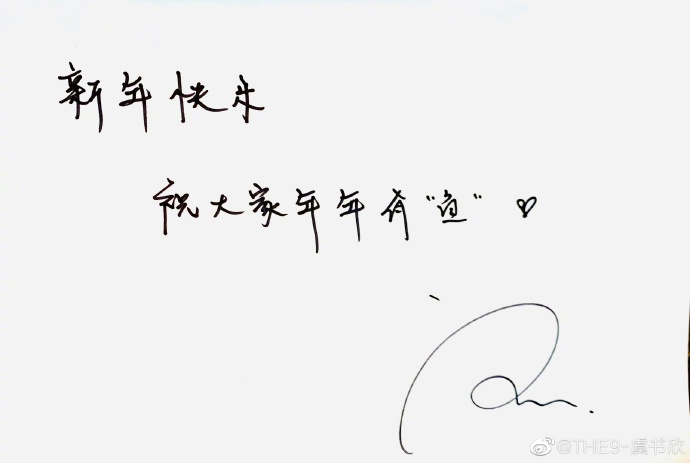 新年快乐
祝大家年年有“鱼”♡
@THE9-虞书欣